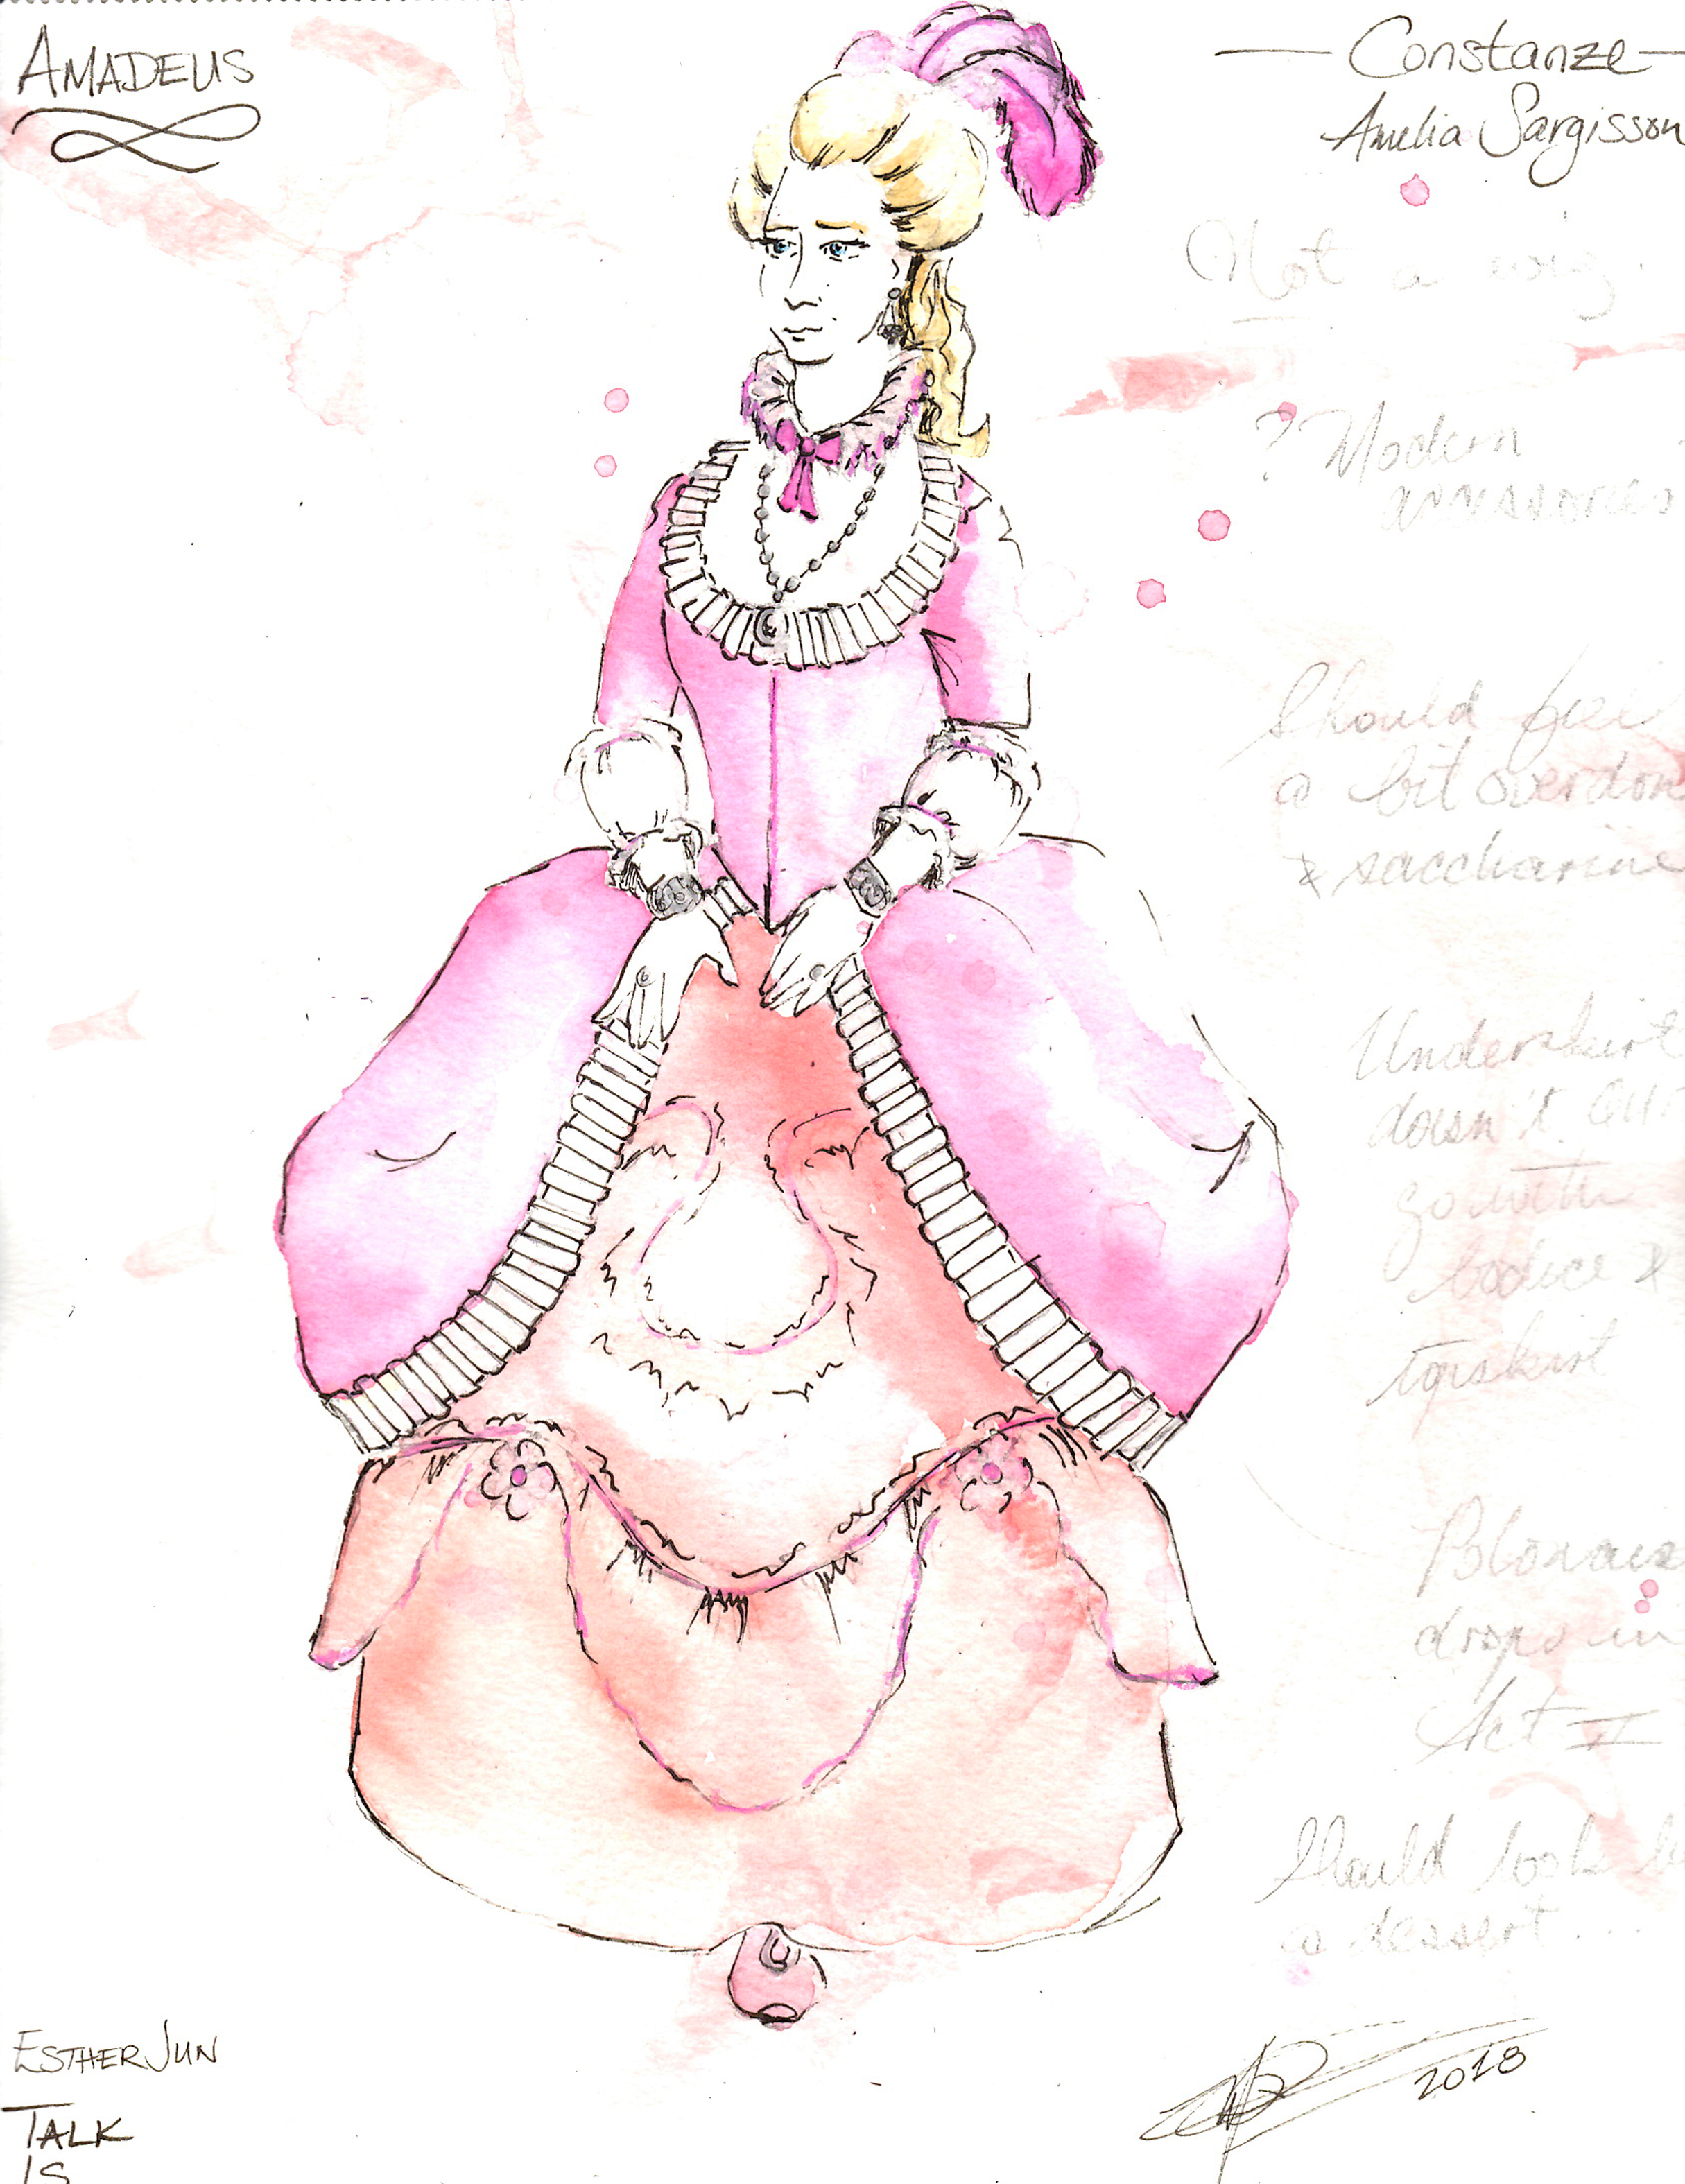 AMADEUS
Constanze
Amelia Sargisson
Not a wig.
? Modern
accessories
Should feel
a bit overdone
& saccharine
Underskirt
doesn't
go with
bodice &
topskirt
drops in
Act II
Should look
a dessert...
ESTHER JUN
TALK
IS
2018